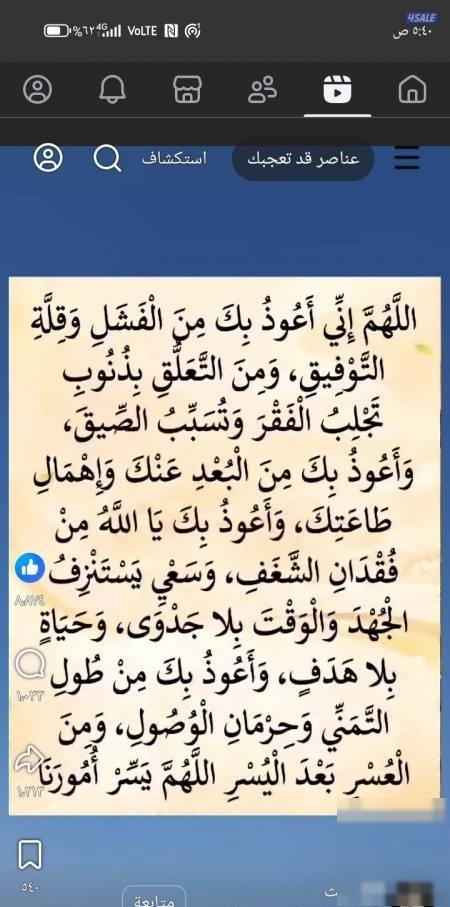 4SALE
٥:٤٠ ص
VoLTE 4G %٦٢
عناصر قد تعجبك
استكشاف
اللَّهُمَّ إِنِّي أَعُوذُ بِكَ مِنَ الْفَشَلِ وَقِلَّةِ
التَّوْفِيقِ، وَمِنَ التَّعَلُّقِ بِذُنُوبٍ
تَجْلِبُ الْفَقْرَ وَتُسَبِّبُ الضِّيقَ،
وَأَعُوذُ بِكَ مِنَ الْبُعْدِ عَنْكَ وَإِهْمَالِ
طَاعَتِكَ، وَأَعُوذُ بِكَ يَا اللَّهُ مِنْ
فُقْدَانِ الشَّغَفِ، وَسَعْيٍ يَسْتَنْزِفُ
الْجُهْدَ وَالْوَقْتَ بِلا جَدْوَى، وَحَيَاةٍ
بِلا هَدَفٍ، وَأَعُوذُ بِكَ مِنْ طُولِ
التَّمَنِّي وَحِرْمَانِ الْوُصُولِ، وَمِنَ
الْعُسْرِ بَعْدَ الْيُسْرِ اللَّهُمَّ يَسِّرْ أُمُورَنَا
٨٬٨٧٤
١٬٠٣٣
١٬٢١٣
٥٤٠
متابعة